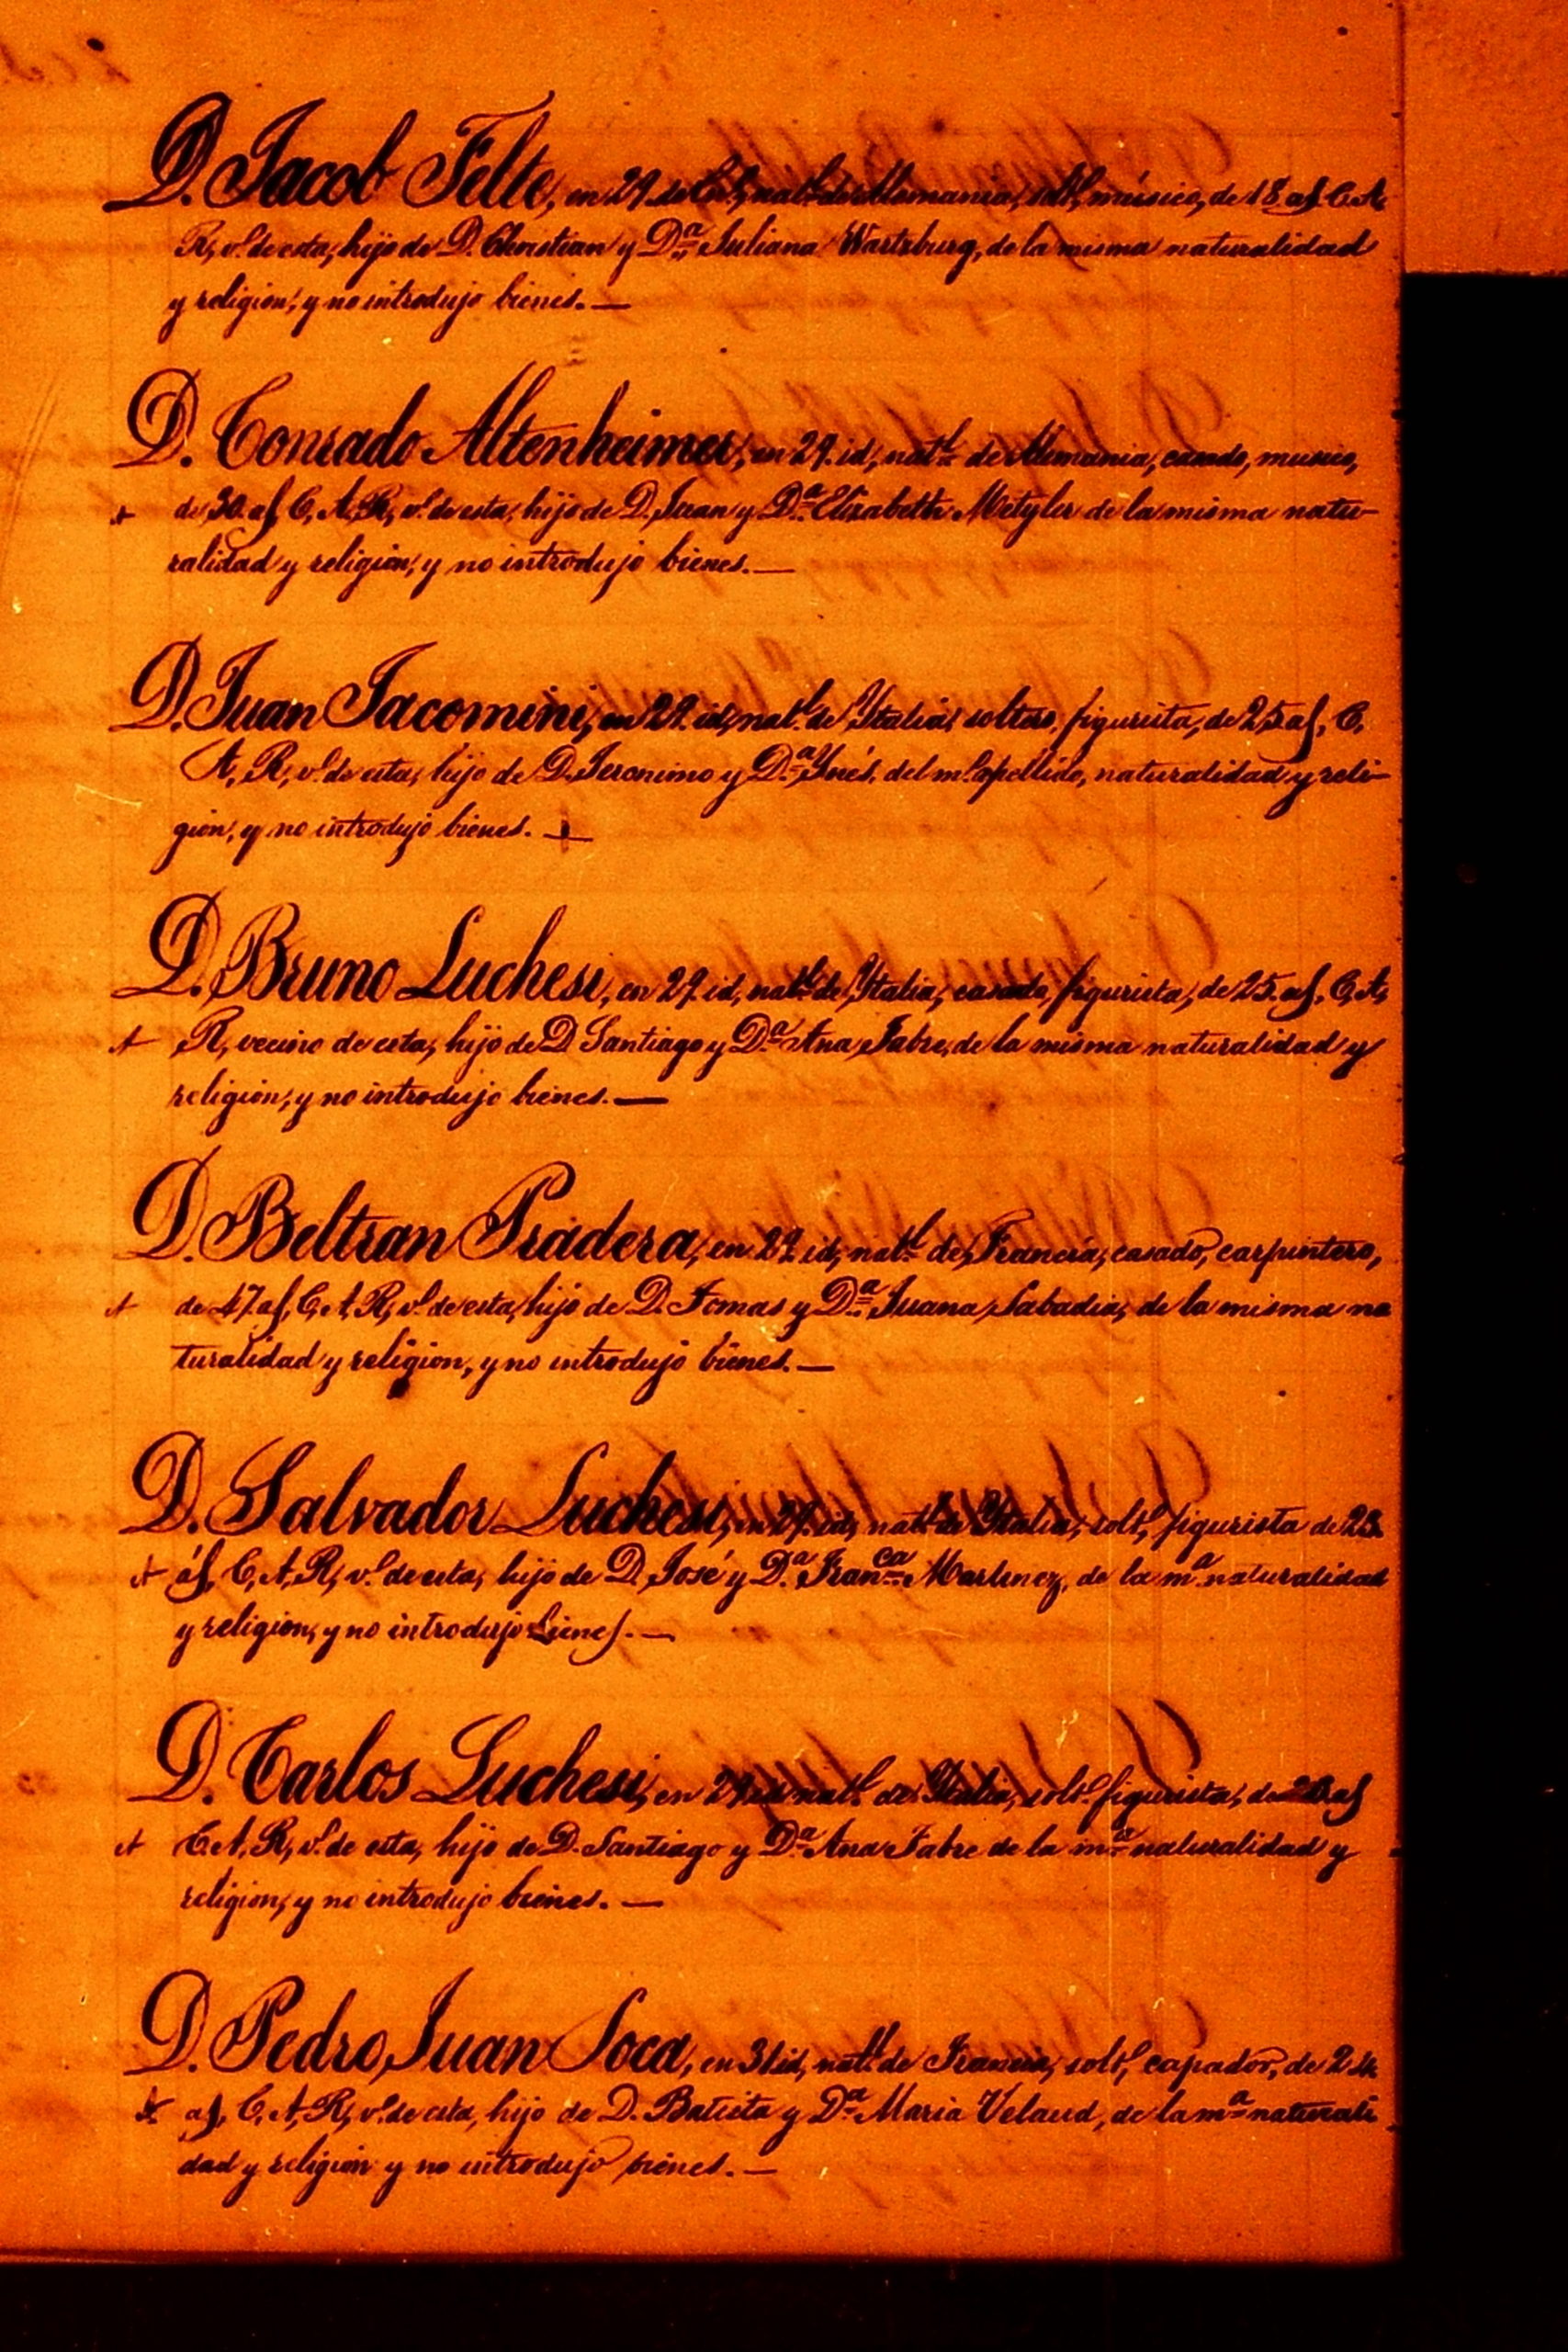 D. Jacob Felte, en 29. de natl. de Alemania, solt, músico, de 18 as. C. A.
R, vo. de esta, hijo de D. Christian y Da. Juliana Wartzburg, de la misma naturalidad
y religion, y no introdujo bienes. —
D. Conrado Altenheimer, en 29. id, natl. de Alemania, casado, musico,
de 30. as, C. A. R, vo. de esta, hijo de D. Juan y Da. Elizabeth Metyler de la misma natu-
ralidad y religion, y no introdujo bienes. —
D. Juan Jacomini, en 29. id, natl. de Ytalia, soltero, figurista, de 25. as, C.
A. R, vo. de esta, hijo de D. Jeronimo y Da. Ynés. del mo. apellido, naturalidad y reli-
gion, y no introdujo bienes. —
D. Bruno Luchesi, en 29. id, natl. de Ytalia, casado, figurista, de 25. as, C. A.
R, vecino de esta, hijo de D Santiago y Da. Ana Fabre, de la misma naturalidad y
religion, y no introdujo bienes. —
D. Beltran Pradera, en 29 id, natl. de Francia, casado, carpintero,
de 47. as, C. A. R, vo. de esta, hijo de D. Tomas y Da. Juana Sabadia, de la misma na
turalidad y religion, y no introdujo bienes. —
D. Salvador Luchesi, en 29. id, natl. de Ytalia, solt, figurista de 23.
as, C. A. R, vo. de esta, hijo de D. José y Da. Franca. Martinez, de la ma. naturalidad
y religion, y no introdujo bienes. —
D. Carlos Luchesi, en 29. id natl. de Ytalia, solto. figurista, de as
C. A. R, vo. de esta, hijo de D. Santiago y Da. Ana Fabre de la ma. naturalidad y
religion, y no introdujo bienes. —
D. Pedro Juan Soca, en 31 id, natl. de Francia, solt, capador, de 24
as, C. A. R, vo. de esta, hijo de D. Batista y Da. Maria Velaud, de la ma. naturali
dad y religion y no introdujo bienes. —